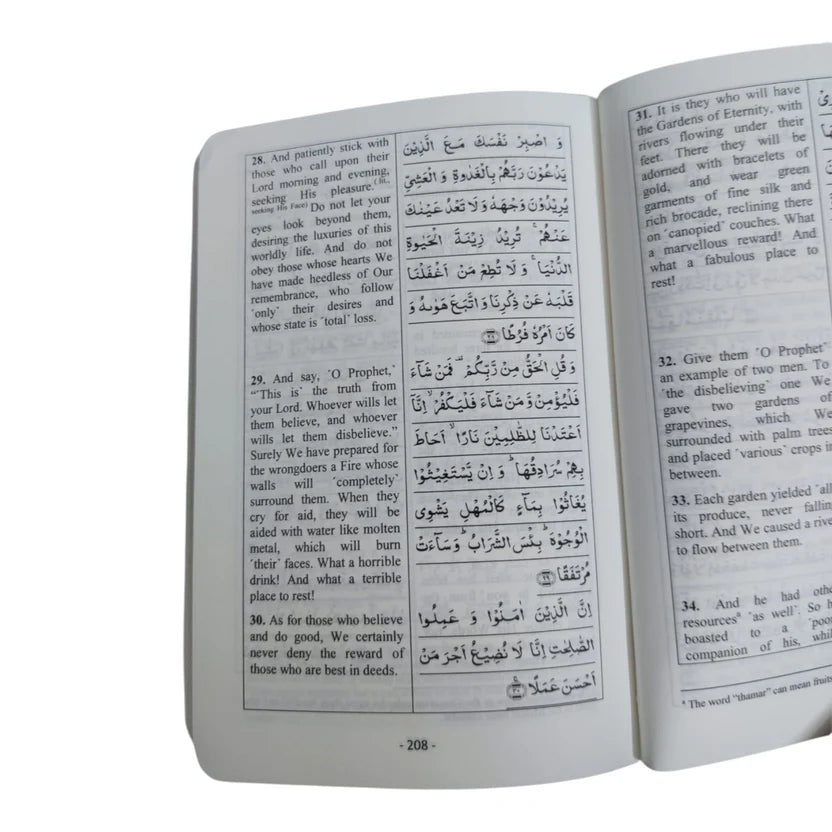 28. And patiently stick with
those who call upon their
Lord morning and evening,
seeking His pleasure.(lit.,
seeking His Face) Do not let your
eyes look beyond them,
desiring the luxuries of this
worldly life. And do not
obey those whose hearts We
have made heedless of Our
remembrance, who follow
˹only˺ their desires and
whose state is ˹total˺ loss.
29. And say, ˹O Prophet,˺
“˹This is˺ the truth from
your Lord. Whoever wills let
them believe, and whoever
wills let them disbelieve.”
Surely We have prepared for
the wrongdoers a Fire whose
walls will ˹completely˺
surround them. When they
cry for aid, they will be
aided with water like molten
metal, which will burn
˹their˺ faces. What a horrible
drink! And what a terrible
place to rest!
30. As for those who believe
and do good, We certainly
never deny the reward of
those who are best in deeds.
وَ اصْبِرْ نَفْسَكَ مَعَ الَّذِيْنَ
يَدْعُوْنَ رَبَّهُمْ بِالْغَدٰوةِ وَ الْعَشِيِّ
يُرِيْدُوْنَ وَجْهَهٗ وَ لَا تَعْدُ عَيْنٰكَ
عَنْهُمْ ۚ تُرِيْدُ زِيْنَةَ الْحَيٰوةِ
الدُّنْيَا ۚ وَ لَا تُطِعْ مَنْ اَغْفَلْنَا
قَلْبَهٗ عَنْ ذِكْرِنَا وَ اتَّبَعَ هَوٰىهُ وَ
كَانَ اَمْرُهٗ فُرُطًا ﴿۲۸﴾
وَ قُلِ الْحَقُّ مِنْ رَّبِّكُمْ ۫ فَمَنْ شَآءَ
فَلْيُؤْمِنْ وَّ مَنْ شَآءَ فَلْيَكْفُرْ ۙ اِنَّاۤ
اَعْتَدْنَا لِلظّٰلِمِيْنَ نَارًا ۙ اَحَاطَ
بِهِمْ سُرَادِقُهَا ؕ وَ اِنْ يَّسْتَغِيْثُوْا
يُغَاثُوْا بِمَآءٍ كَالْمُهْلِ يَشْوِى
الْوُجُوْهَ ؕ بِئْسَ الشَّرَابُ ؕ وَ سَآءَتْ
مُرْتَفَقًا ﴿۲۹﴾
اِنَّ الَّذِيْنَ اٰمَنُوْا وَ عَمِلُوا
الصّٰلِحٰتِ اِنَّا لَا نُضِيْعُ اَجْرَ مَنْ
اَحْسَنَ عَمَلًا ﴿۳۰﴾
- 208 -
31. It is they who will have
the Gardens of Eternity, with
rivers flowing under their
feet. There they will be
adorned with bracelets of
gold, and wear green
garments of fine silk and
rich brocade, reclining there
on ˹canopied˺ couches. What
a marvellous reward! And
what a fabulous place to
rest!
32. Give them ˹O Prophet˺
an example of two men. To
˹the disbelieving˺ one We
gave two gardens of
grapevines, which We
surrounded with palm trees
and placed ˹various˺ crops in
between.
33. Each garden yielded ˹all˺
its produce, never falling
short. And We caused a
to flow between them.
34. And he had
resources* ˹as well˺. So
boasted to a
companion of his,
* The word “thamar” can mean fruits